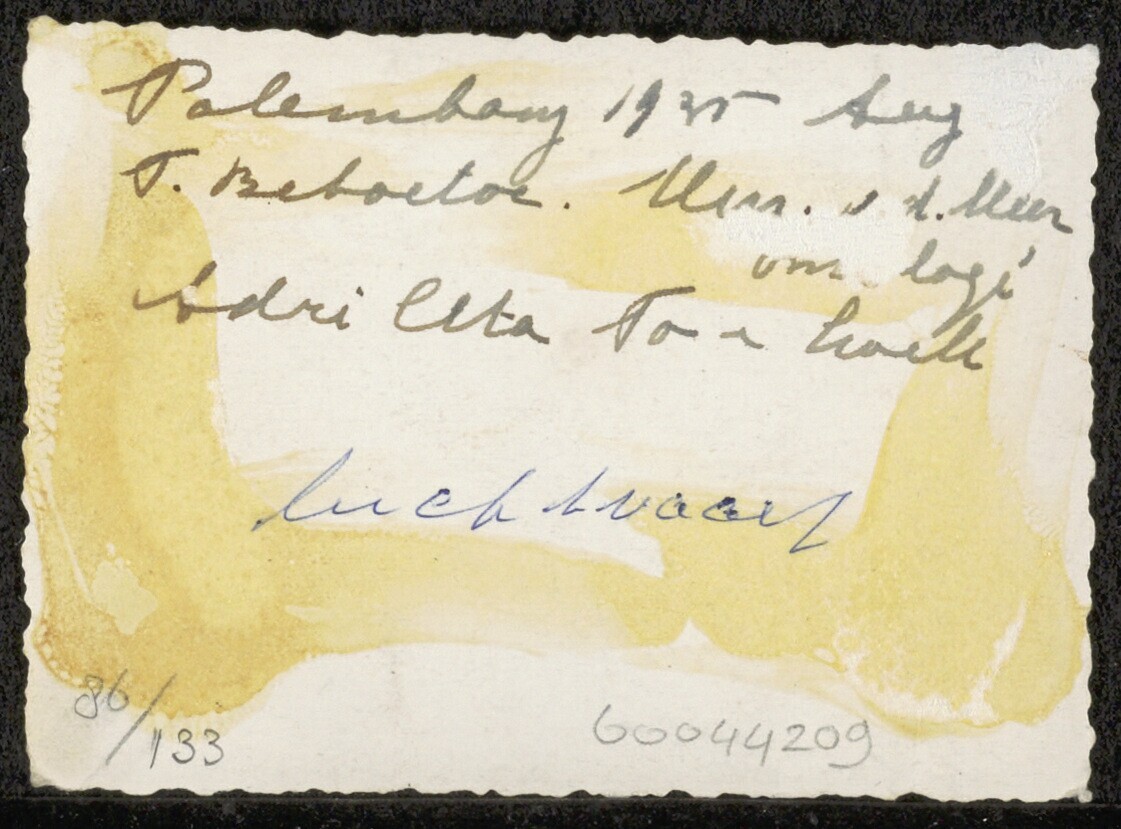 Palembang 1935 Aug
T. Beboetoe. Men. v d. Meer
om logé
Adri Uta To
luchtvaart
86/133
60044209